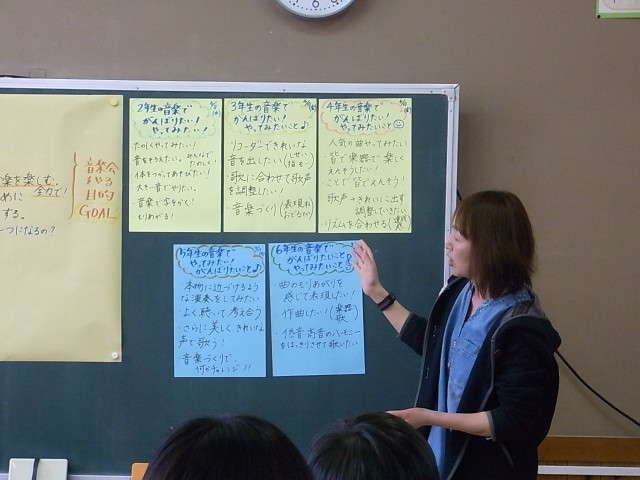 楽を楽しむ。
めに 全力で!
する。
一つになるの?
音楽会
をやる
目的
GOAL
2年生の音楽で
がんばりたい!
やってみたい!
たのしくやってみたい!
音をそろえたい。みんなで
大きい音でやりたい。
もりあがる!
3年生の音楽で
がんばりたい!
やってみたいこと♪
リコーダーできれいな
音を出したい(しせい
指も…
・歌に合わせて歌声
を調整したい!
・音楽づくり(表現も
4年生の音楽で
がんばりたい!
やってみたいこと☺
人気の曲やってみたい
皆で楽器で楽しく
えんそうしたい!
・ことで皆でえんそう!
歌声→きれいに出す
調整していきたい
・リズムを合わせる
5年生の音楽で
やってみたい!
がんばりたいこと♪
本物に近づけるよう
な演奏をしてみたい
よく聴いて考え合う
・さらに美しくきれいな
声で歌う!
・音楽づくりで、
何かチャレンジ!!
6年生の音楽で
がんばりたいこと
やってみたいこと
・曲のもりあがりを
感じて表現したい!
・作曲したい!(楽器
歌
・低音高音のハーモニー
をはっきりさせて歌いたい